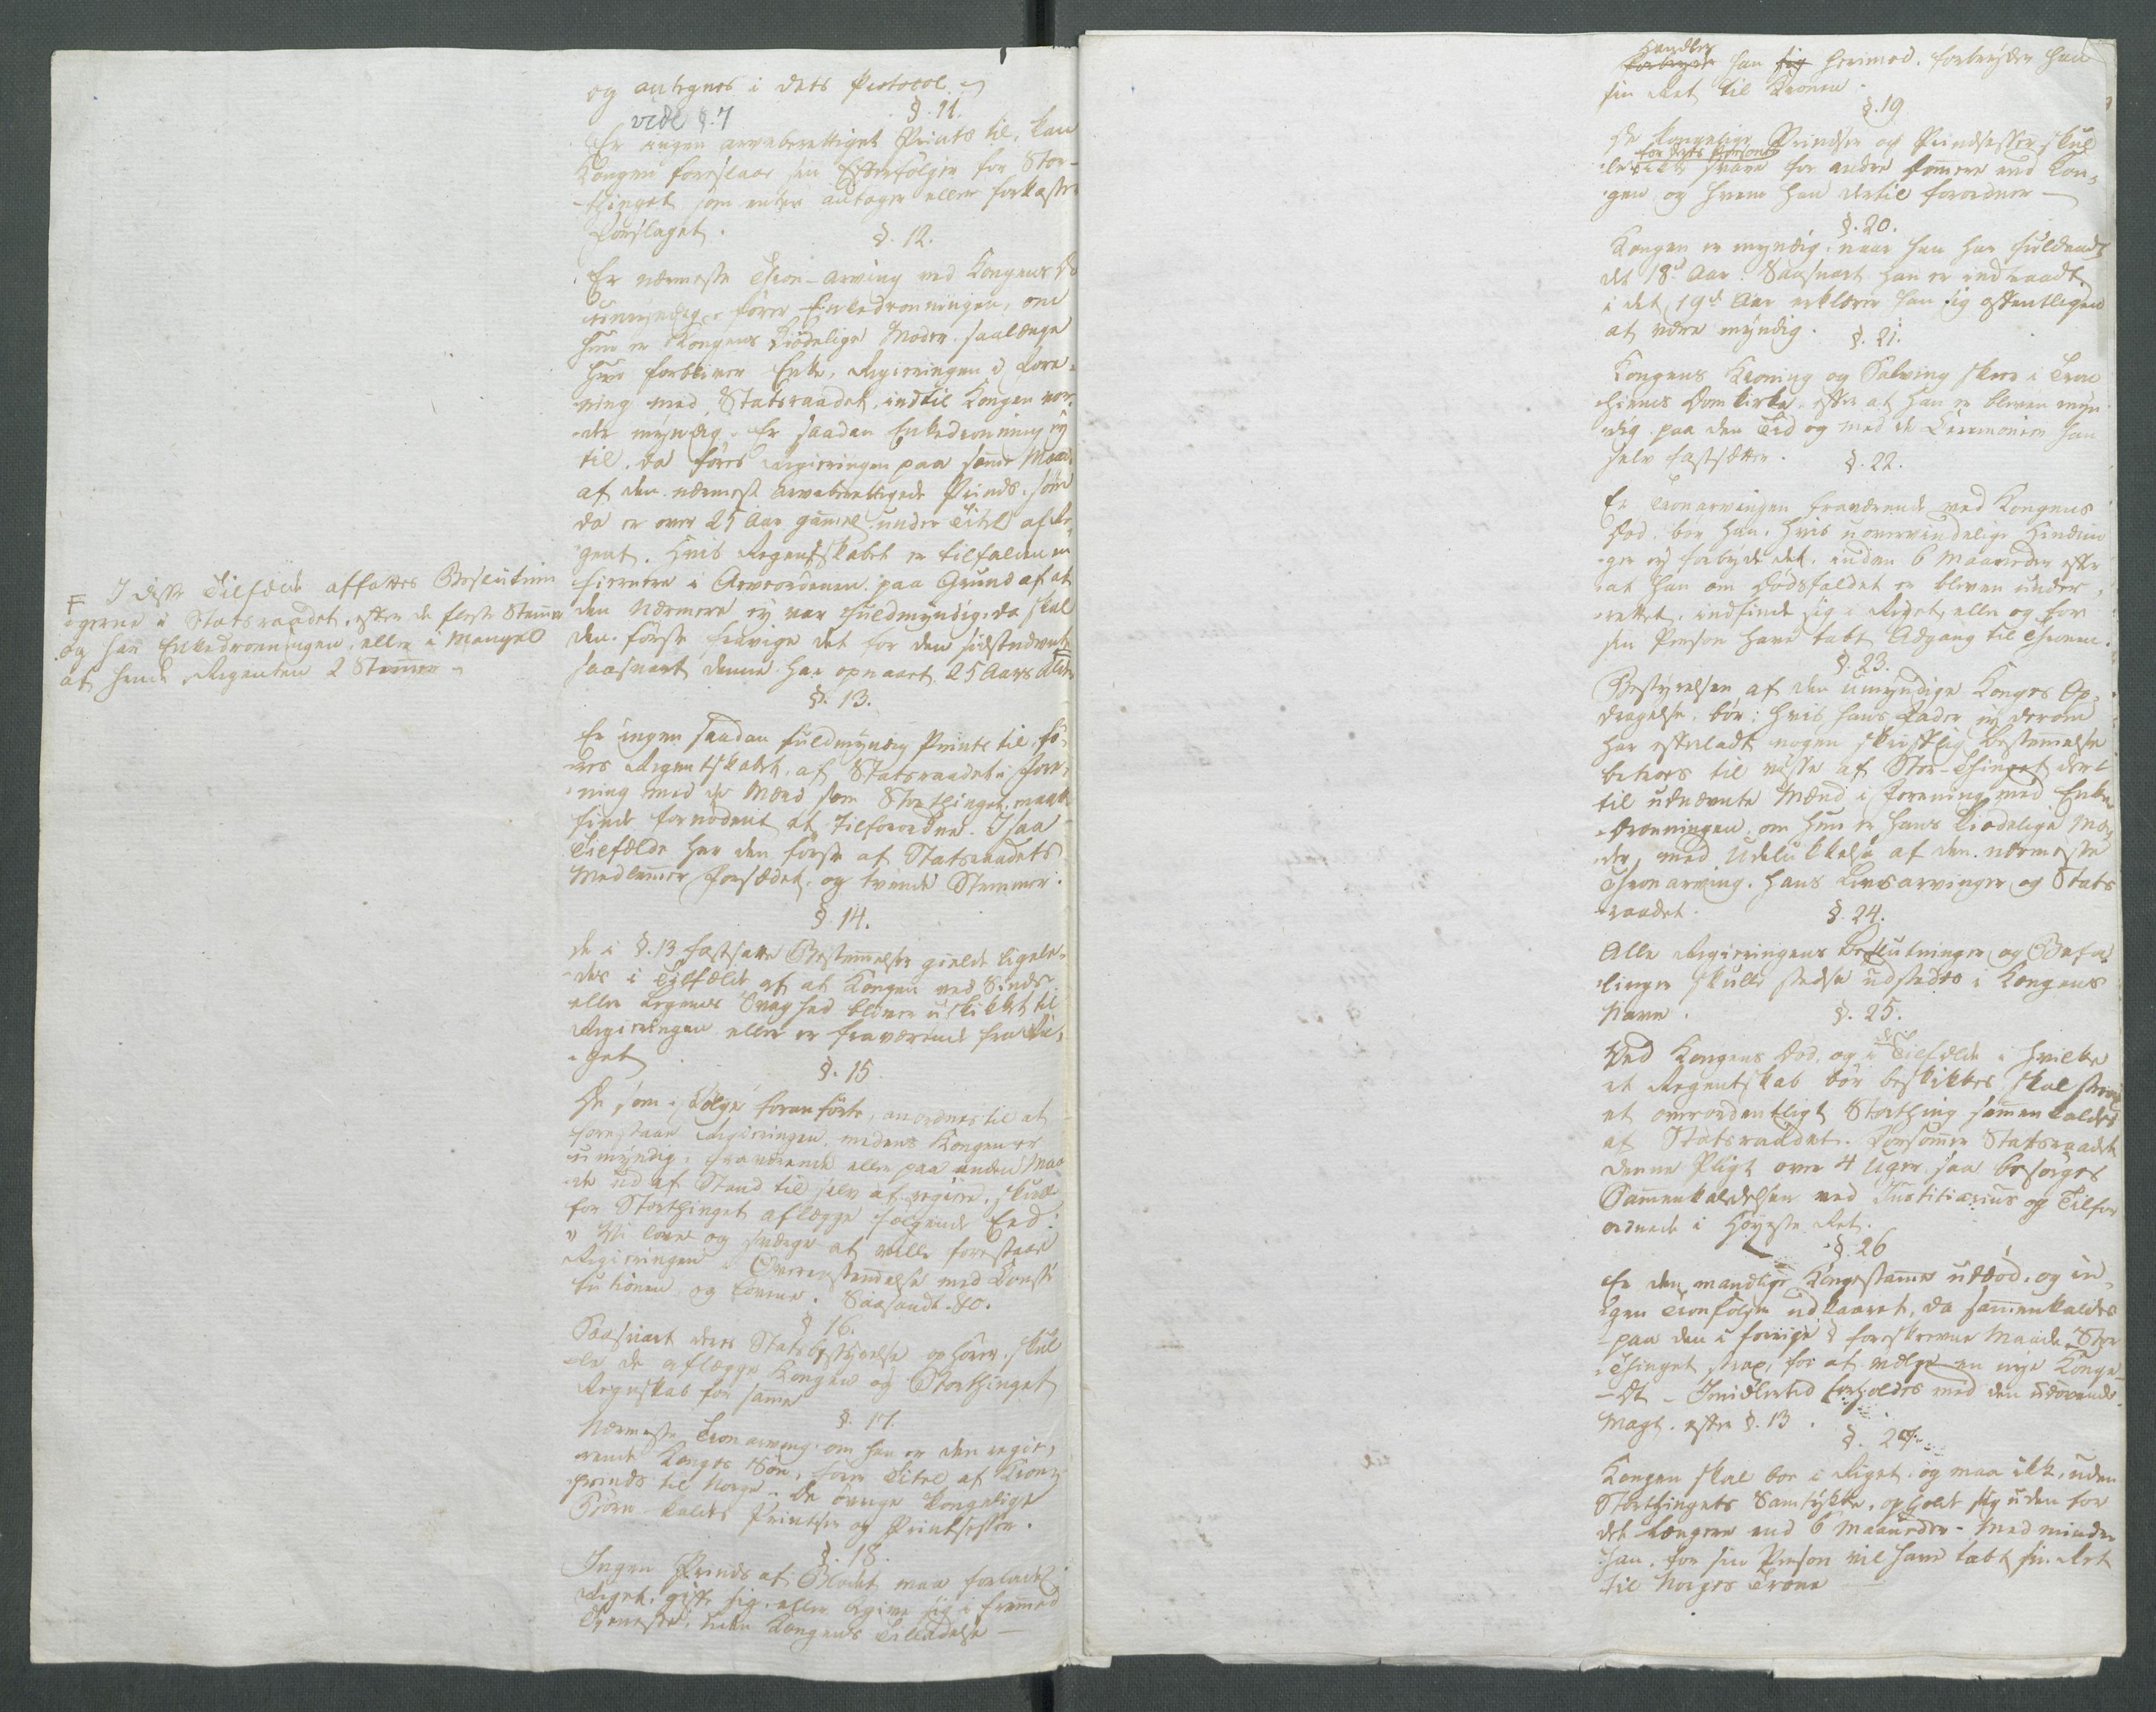 og antegnes i dets Protocol.
vide §.7
§.11.
Er ingen arveberettiget Prints til, kan
Kongen foreslaae sin Efterfølger for Stor-
-thinget, som enten antager eller forkaster
Forslaget.
§. 12.
Er nærmeste Thron-Arving ved Kongens Dø
umyndig, fører Enkedronningen, om
hun er Kongens kiødelige Moder, saalænge
hun forbliver Enke, Regieringen i Fore-
-ning med Statsraadet, indtil Kongen vor-
-der myndig. Er saadan Enkedronning ey
til, da føres Regieringen paa samme Maad
af den nærmest arveberettigede Prinds, som
da er over 25 Aar gammel under Titel af Re-
gent. Hvis Regentskabet er tilfalden en
fiernere i Arveordenen paa Grund af at
den Nærmere ey var fuldmyndig, da skal
den første fravige det for den sidstnævnte
saasnart denne har opnaaet 25 Aars Alder
F I disse Tilfælde affattes Beslutnin
-gerne i Statsraadet, efter de fleste Stemmer
og har Enkedronningen, eller i Mangel
af hende Regenten 2 Stemmer -
§. 13.
Er ingen saadan fuldmyndig Prints til, fø-
-res Regentskabet, af Statsraadet i Fore-
-ning med de Mænd som Storthinget maatte
finde fornødent at tilforordne. I saa
Tilfælde har den første af Statsraadets
Medlemmer Forsædet, og tvende Stemmer.
§. 14.
De i §.13 fastsatte Bestemmelser gielde ligele-
-des i Tilfælde af at Kongen ved Sinds
eller Legems Svaghed bliver uskikket til
Regieringen eller er fraværende fra Ri-
-get
§. 15
De som i Følge foranførte, anordnes til at
forestaae Regieringen, medens Kongen er
umyndig, fraværende eller paa anden Maa
-de ud af Stand til selv at regiere, skulle
for Storthinget aflægge følgende Eed:
" Vi love og sværge at ville forestaae
Regieringen i Overensstemmelse med Consti
tutionen og Lovene. Saasandt &c.
§ 16.
Saasnart deres Statsbestyrelse ophører, skul
-le de aflægge Kongen og Storthinget
Regnskab for samme
§. 17.
Nærmeste Tronarving, om han er den regie-
rende Konges Søn, fører Titel af Kron-
prinds til Norge. De øvrige kongelige
Børn kaldes Printser og Printsesser.
§. 18.
Ingen Prinds af Blodet maa forlade
Riget, gifte sig, eller begive sig i fremmed
Tieneste, uden Kongens Tilladelse —
Handler
forbryder han sig herimod, forbryder han
sin Ret til Kronen.
§.19
De kongelige Prindser og Prindsesser skul
for deres Personer
-le ikke svare for andre Domere end Kon-
-gen, og hvem han dertil forordner —
§.20.
Kongen er myndig, naar han har fuldendt
det 18de Aar. Saasnart han er indtraadt
i det 19de Aar erklærer han sig offentligen
at være myndig.
§. 21.
Kongens Kroning og Salving skeer i Tron
-hiems Domkirke, efter at han er bleven myn
-dig, paa den Tid og med de Ceremonier han
selv fastsætter.
§. 22.
Er Tronarvingen fraværende ved Kongens
Død, bør han, hvis uovervindelige Hindrin
-ger ej forbyde det, inden 6 Maaneder efter
at han om Dødsfaldet er bleven under-
-rettet, indfinde sig i Riget, eller og for
sin Person have tabt Adgang til Tronen.
§. 23.
Bestyrelsen af den umyndige Konges Op-
dragelse, bør; hvis hans Fader ey derom
har efterladt nogen skriftlig Bestemmelse
betroes til visse af Stor-Thinget der-
til udnævnte Mænd i Forening med Enke
-dronningen, om hun er hans kiødelige Mo-
-der, med Udelukkelse af den nærmeste
Tronarving, hans Livsarvinger og Stats
-raadet.
§. 24.
Alle Regieringens Beslutninger og Befa
-linger skulle stedse udstædes i Kongens
Navn.
§. 25.
Ved Kongens Død, og i de Tilfælde i hvilke
et Regentskab bør beskikkes, skal strax
et overordentligt Storthing sammenkaldes
af Statsraadet. Forsømmer Statsraadet
denne Pligt over 4 Uger, saa besørges
Sammenkaldelsen ved Justitiarius og Tilfor
ordnede i Høyeste Ret.
§. 26
Er den mandlige Kongestamme uddød, og in-
-gen Tronfølger udkaaret, da sammenkaldes
paa den i forrige § foreskrevne Maade Stor
-Thinget strax, for at vælge en nye Konge-
-Æt - Imidlertid forholdes med den udøvende
Magt efter §.13.
§. 27.
Kongen skal boe i Riget, og maa ikke, uden
Storthingets Samtykke, opholde sig uden for
det længere end 6 Maaneder - Med mindre
han, for sin Person vil have tabt sin Ret
til Norges Trone